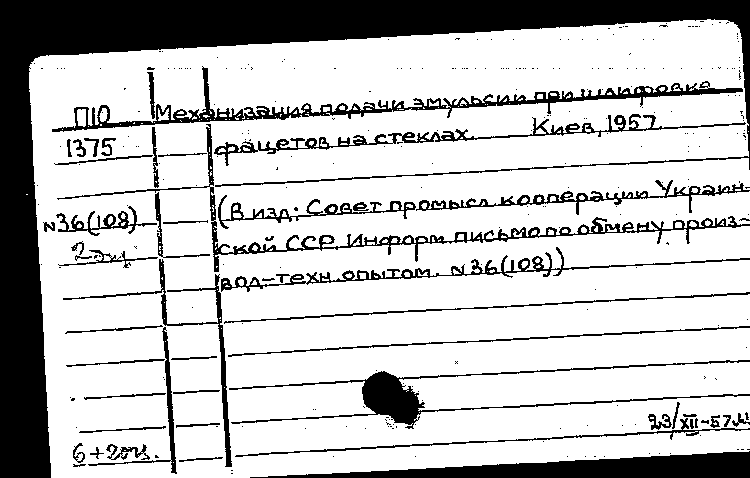 П10 Механизация подачи эмульсии при шлифовке
1375 фацетов на стеклах. Киев, 1957.
N36(108) (В изд: Совет промысл. кооперации Украин-
2 экз. ской ССР. Информ. письмо по обмену произ-
вод-техн. опытом. N36(108))
23/XII-57